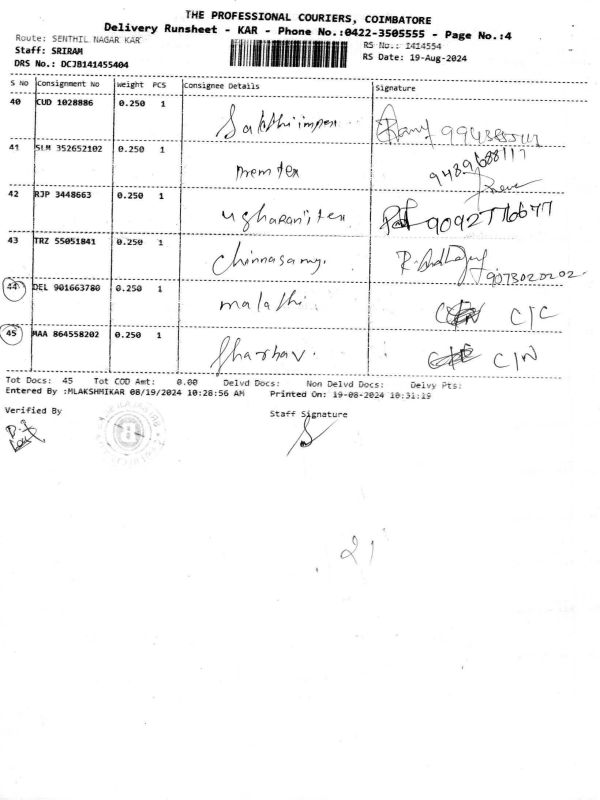 THE PROFESSIONAL COURIERS, COIMBATORE
Delivery Runsheet - KAR - Phone No.:0422-3505555 - Page No.:4
Route: SENTHIL NAGAR KAR
RS No.: 1414554
Staff: SRIRAM
RS Date: 19-Aug-2024
DRS No.: DCJB141455404
S No Consignment No Weight PCS Consignee Details Signature
40 CUD 1028886 0.250 1 Sakthi impex
41 SLM 352652102 0.250 1 Prem tex 9489688117
42 RJP 3448663 0.250 1 9092776677
43 TRZ 55051841 0.250 1 Chinnasamy. 9073020202
44 DEL 901663780 0.250 1 malathi. C/C
45 MAA 864558202 0.250 1 C/N
Tot Docs: 45 Tot COD Amt: 0.00 Delvd Docs: Non Delvd Docs: Delvy Pts:
Entered By :MLAKSHMIKAR 08/19/2024 10:28:56 AM Printed On: 19-08-2024 10:31:19
Verified By
Staff Signature
21